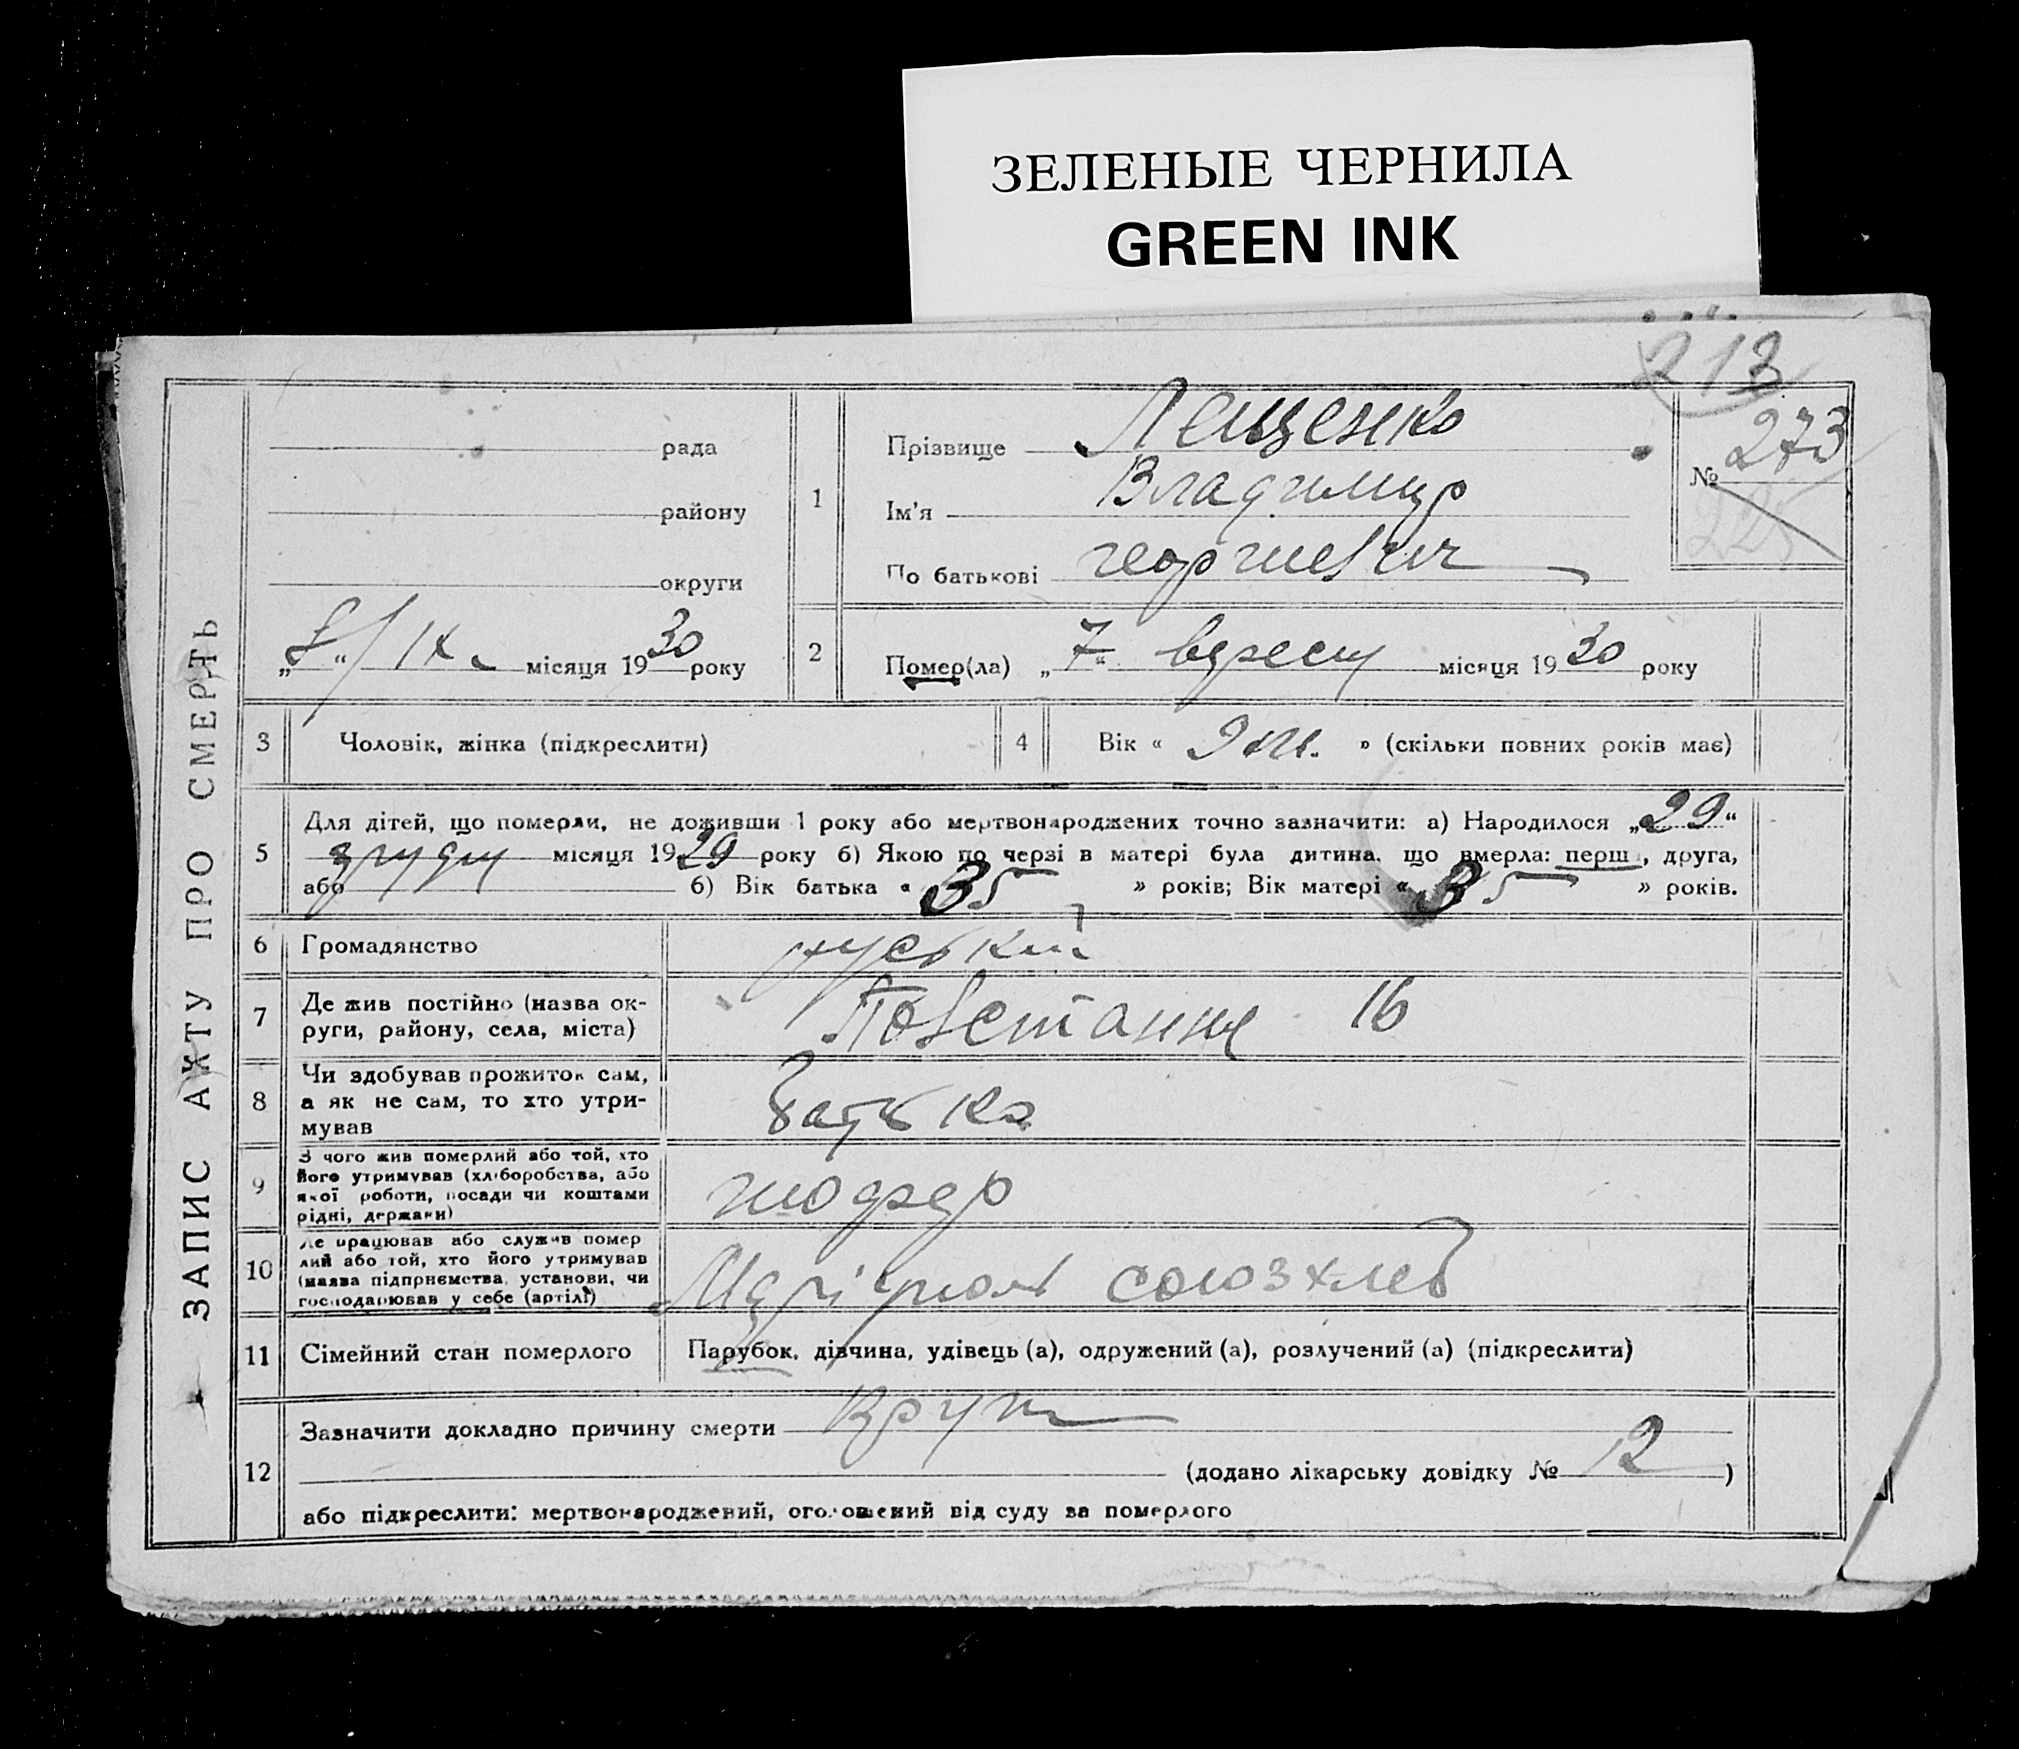 ЗЕЛЕНЫЕ ЧЕРНИЛА
GREEN INK
213
ЗАПИС АКТУ ПРО СМЕРТЬ
рада
району
округи
„8“ IX місяця 1930 року
1 Прізвище Лещенко
Ім'я Владимир
По батькові Георгиевич
№ 273
225
2 Помер(ла) „7“ вересн місяця 1930 року
3 Чоловік, жінка (підкреслити)
4 Вік « 9 м. » (скільки повних років має)
5 Для дітей, що померли, не доживши 1 року або мертвонароджених точно зазначити: а) Народилося „29“
грудн місяця 1929 року б) Якою по черзі в матері була дитина, що вмерла: перша, друга,
або б) Вік батька « 35 » років; Вік матері « 35 » років.
6 Громадянство руський
7 Де жив постійно (назва ок-
руги, району, села, міста) Повстання 16
8 Чи здобував прожиток сам,
а як не сам, то хто утри-
мував батько
9 З чого жив померлий або той, хто
його утримував (хліборобства, або
якої роботи, посади чи коштами
рідні, держави) шофер
10 Де працював або служив помер
лий або той, хто його утримував
(назва підприємства, установи, чи
господарював у себе (артілі) Маріуполь союзхлеб
11 Сімейний стан померлого Парубок, дівчина, удівець (а), одружений (а), розлучений (а) (підкреслити)
12 Зазначити докладно причину смерти Круп
(додано лікарську довідку № 2)
або підкреслити: мертвонароджений, оголошений від суду за померлого